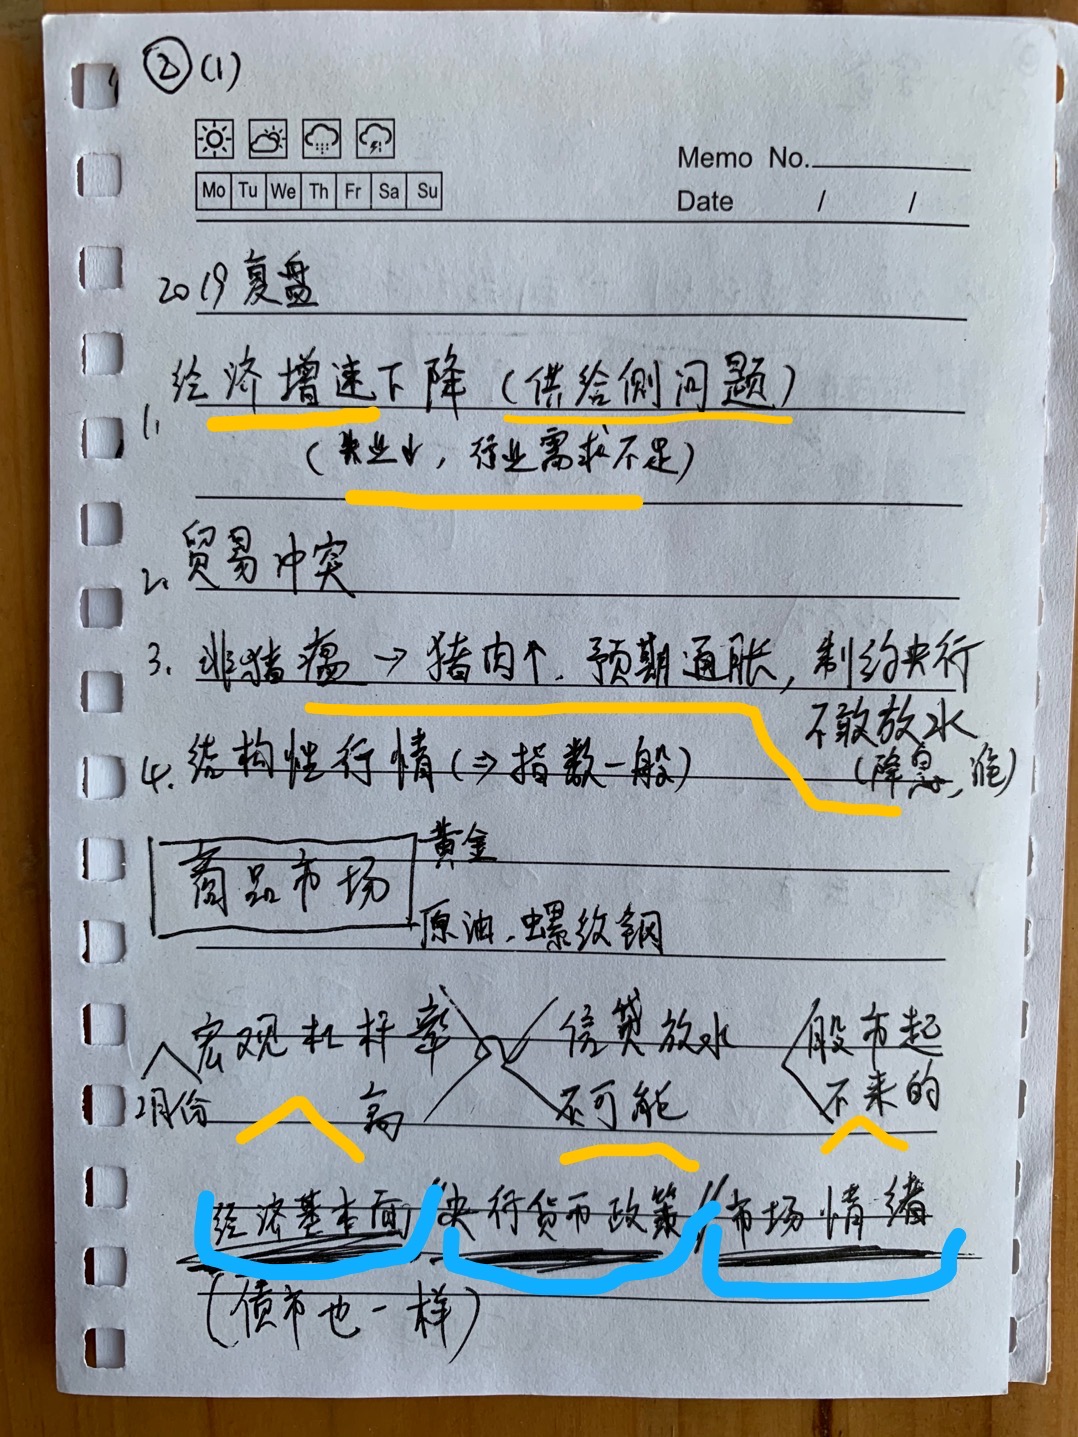 ②(1)
Memo No.
Mo Tu We Th Fr Sa Su
Date / /
2019复盘
1. 经济增速下降(供给侧问题)
(失业↓, 行业需求不足)
2. 贸易冲突
3. 非猪瘟→猪肉↑. 预期通胀, 制约央行
不敢放水
(降息, 准)
4. 结构性行情(⇒指数一般)
商品市场
黄金
原油、螺纹钢
2月份
宏观杠杆率
高
信贷放水
不可能
股市起
不来的
经济基本面/央行货币政策//市场情绪
(债市也一样)